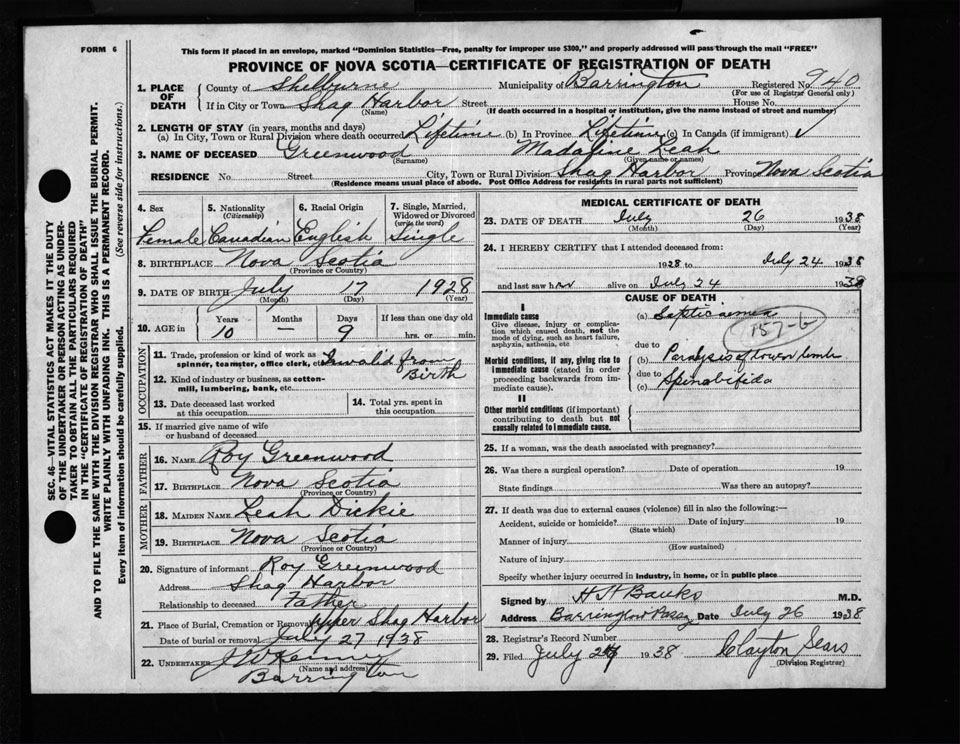 FORM 6
This form if placed in an envelope, marked "Dominion Statistics—Free, penalty for improper use $300," and properly addressed will pass through the mail "FREE"
PROVINCE OF NOVA SCOTIA—CERTIFICATE OF REGISTRATION OF DEATH
SEC. 46—VITAL STATISTICS ACT MAKES IT THE DUTY
OF THE UNDERTAKER OR PERSON ACTING AS UNDER-
TAKER TO OBTAIN ALL THE PARTICULARS REQUIRED
IN THE "CERTIFICATE OF REGISTRATION OF DEATH"
AND TO FILE THE SAME WITH THE DIVISION REGISTRAR WHO SHALL ISSUE THE BURIAL PERMIT.
WRITE PLAINLY WITH UNFADING INK. THIS IS A PERMANENT RECORD.
Every item of information should be carefully supplied. (See reverse side for instructions.)
1. PLACE OF DEATH
County of Shelburne Municipality of Barrington Registered No. 940
(For use of Registrar General only)
If in City or Town Shag Harbor Street House No.
(Name) (If death occurred in a hospital or institution, give the name instead of street and number)
2. LENGTH OF STAY (in years, months and days)
(a) In City, Town or Rural Division where death occurred Lifetime (b) In Province Lifetime (c) In Canada (if immigrant)
3. NAME OF DECEASED Greenwood Madaline Leah
(Surname) (Given name or names)
RESIDENCE No. Street City, Town or Rural Division Shag Harbor Province Nova Scotia
(Residence means usual place of abode. Post Office Address for residents in rural parts not sufficient)
4. Sex 5. Nationality (Citizenship) 6. Racial Origin 7. Single, Married, Widowed or Divorced (write the word)
Female Canadian English Single
8. BIRTHPLACE Nova Scotia
(Province or Country)
9. DATE OF BIRTH July 17 1928
(Month) (Day) (Year)
10. AGE in Years Months Days If less than one day old
10 — 9 hrs. or min.
OCCUPATION
11. Trade, profession or kind of work as spinner, teamster, office clerk, etc. Invalid from Birth
12. Kind of industry or business, as cotton-mill, lumbering, bank, etc.
13. Date deceased last worked at this occupation
14. Total yrs. spent in this occupation
15. If married give name of wife or husband of deceased
FATHER
16. NAME Roy Greenwood
17. BIRTHPLACE Nova Scotia
(Province or Country)
MOTHER
18. MAIDEN NAME Leah Dickie
19. BIRTHPLACE Nova Scotia
(Province or Country)
20. Signature of informant Roy Greenwood
Address Shag Harbor
Relationship to deceased Father
21. Place of Burial, Cremation or Removal Upper Shag Harbor
Date of burial or removal July 27 1938
22. UNDERTAKER J W Kenney
(Name and address)
Barrington
MEDICAL CERTIFICATE OF DEATH
23. DATE OF DEATH July 26 1938
(Month) (Day) (Year)
24. I HEREBY CERTIFY that I attended deceased from:
1928 to July 24 1938
and last saw her alive on July 24 1938
CAUSE OF DEATH
I
Immediate cause
Give disease, injury or complication which caused death, not the mode of dying, such as heart failure, asphyxia, asthenia, etc
(a) Septicaimia
157-b
due to
Morbid conditions, if any, giving rise to immediate cause (stated in order proceeding backwards from immediate cause).
(b) Paralysis of lower limbs
due to
(c) Spinabifida
II
Other morbid conditions (if important) contributing to death but not causally related to immediate cause.
25. If a woman, was the death associated with pregnancy?
26. Was there a surgical operation? Date of operation 19
State findings Was there an autopsy?
27. If death was due to external causes (violence) fill in also the following:—
Accident, suicide or homicide? Date of injury 19
(State which)
Manner of injury
(How sustained)
Nature of injury
Specify whether injury occurred in industry, in home, or in public place
Signed by H H Banks M.D.
Address Barrington Passg Date July 26 1938
28. Registrar's Record Number
29. Filed July 1938 Clayton Sears
(Division Registrar)